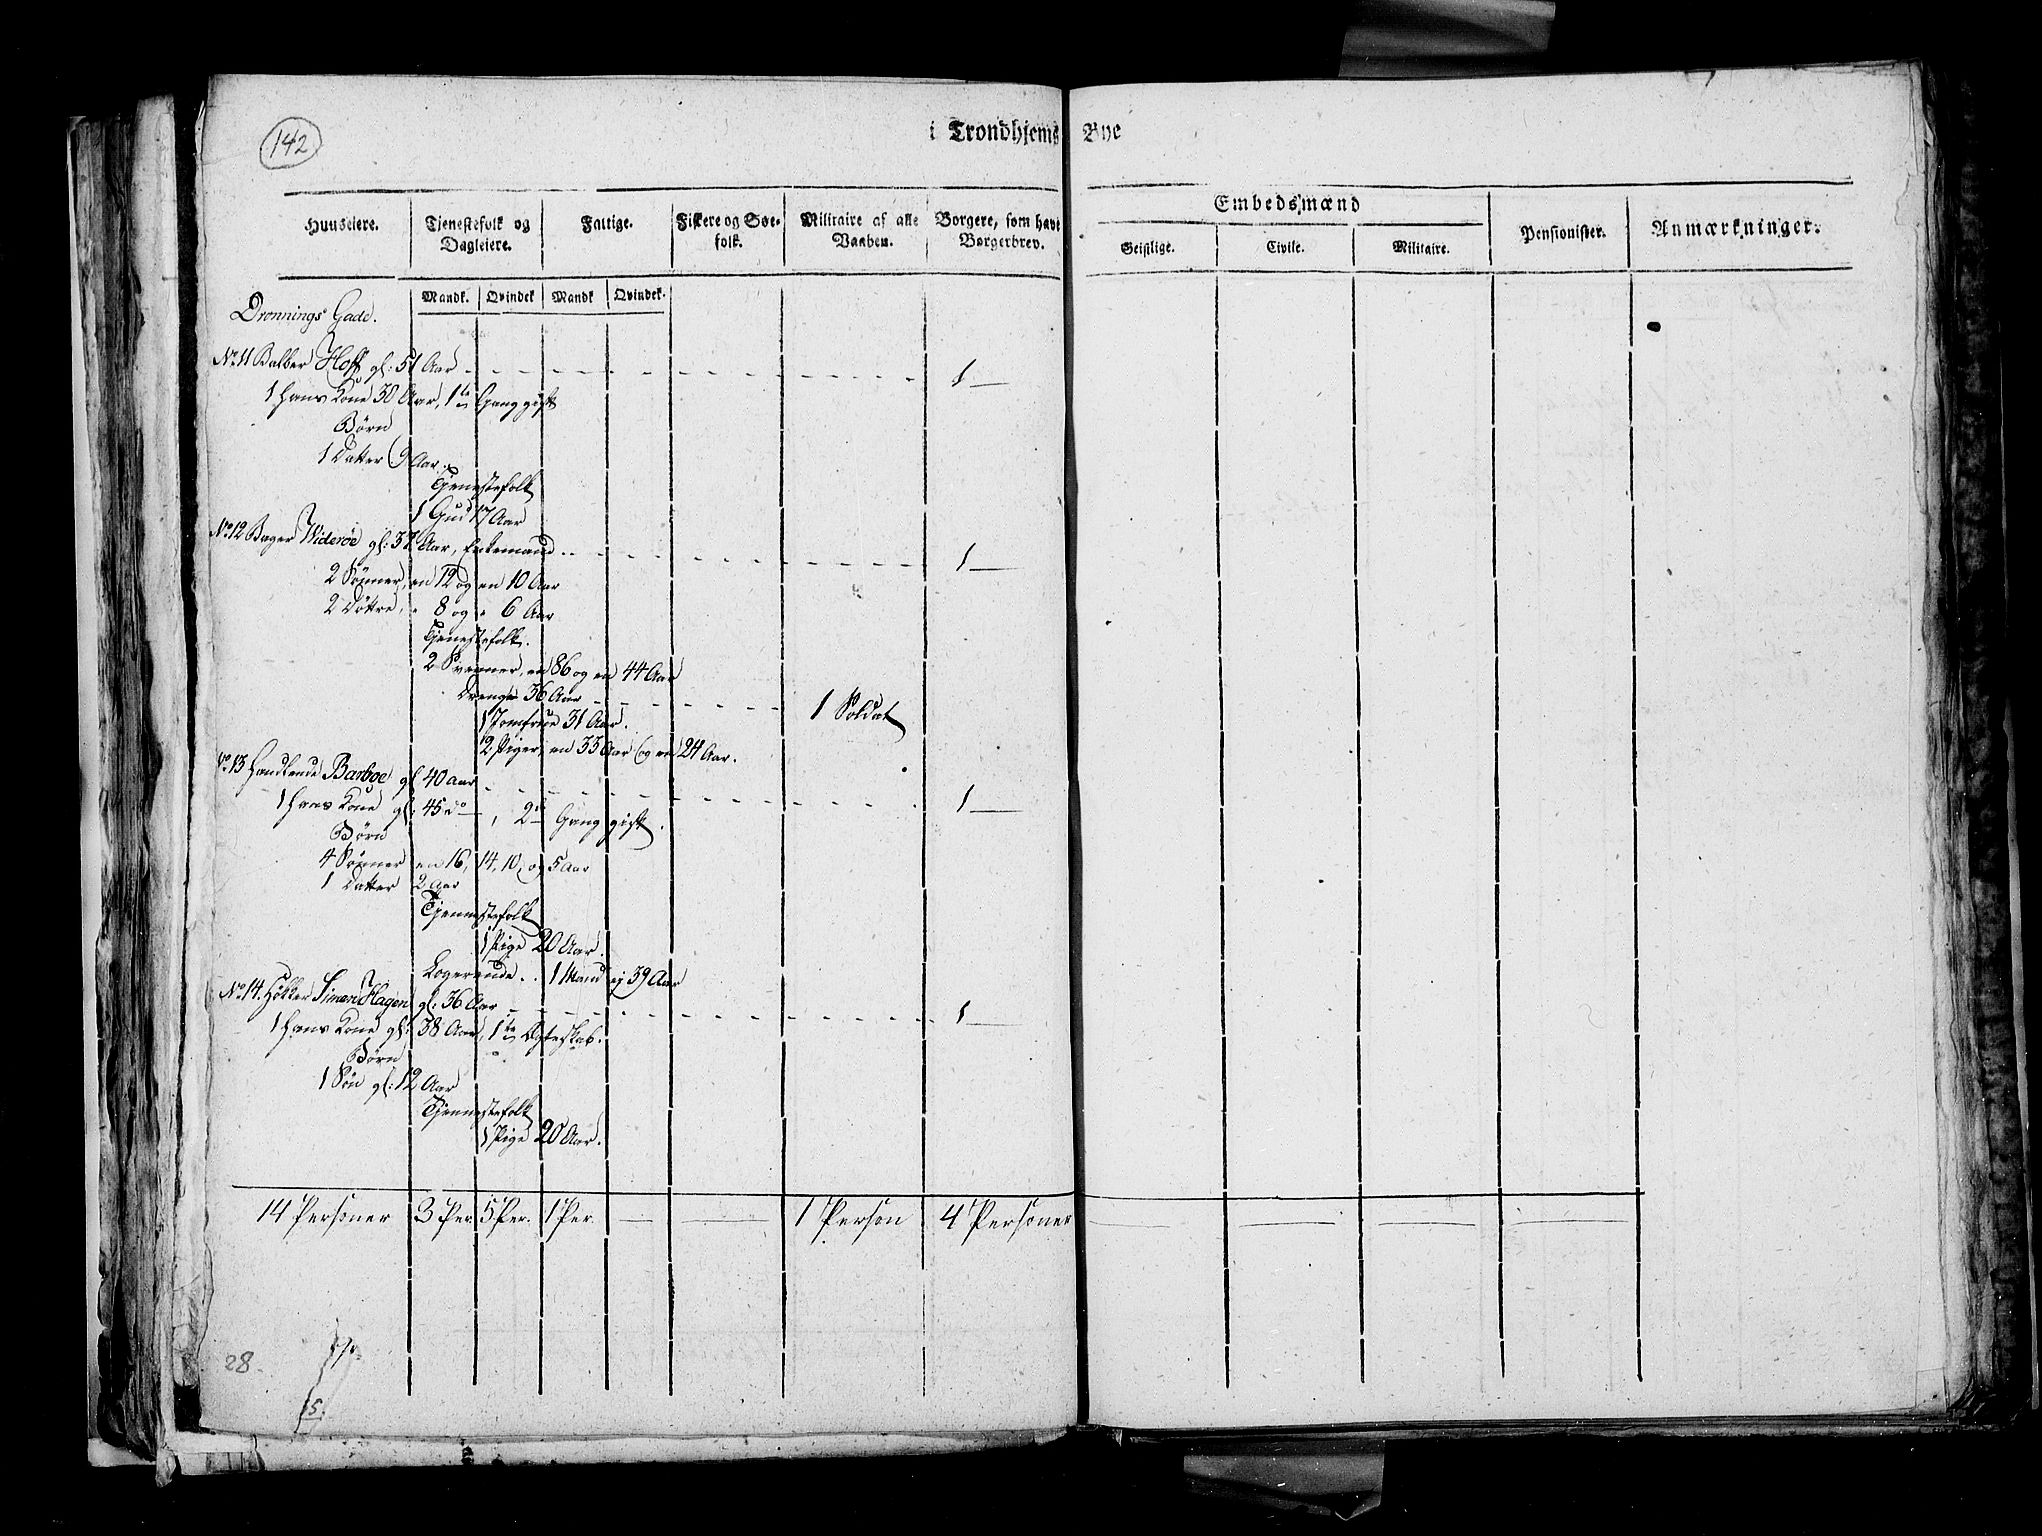 142
i Trondhjems Bye
Huuseiere. Tjenestefolk og Dagleiere. Fattige. Fiskere og Søe-folk. Militaire af alle Vaaben. Borgere, som have Borgerbrev. Embedsmænd Geistlige. Civile. Militaire. Pensionister. Anmærkninger.
Mandk. Qvindek Mandk Qvindek.
Dronnings Gade.
No 11 Balber Hoff gl: 51 Aar 1
1 Hans Kone 38 Aar, 1te Gang gift
Børn
1 Datter 9 Aar.
Tjenestefolk
1 Gud 17 Aar
No 12 Bager Widerøe gl: 37 Aar, Enkemand 1
2 Sønner, en 12 og en 10 Aar
2 Døttre, " 8 og " 6 Aar
Tjenestefolk.
2 Svenner, en 86 og en 44 Aar
Drenge 36 Aar 1 Soldat
1 Jomfrue 31 Aar.
2 Piger, en 33 Aar og en 24 Aar.
No 13 Handlende Barboe gl 40 aar 1
1 Hans Kone gl: 45 do, 2den Gang gift.
Børn
4 Sønner en 16, 14, 10, og 5 Aar
1 Datter 2 Aar
Tjennestefolk
1 Pige 20 Aar.
Logerende.. 1 Mand 39 Aar
No 14. Høkker Simen Hagen gl: 36 Aar 1
1 Hans Kone gl: 38 Aar, 1te Ægteskab.
Børn
1 Søn gl: 12 Aar
Tjennestefolk
1 Pige 20 Aar.
14 Personer 3 Per. 5 Per. 1 Per. 1 Person 4 Personer
28.
15.